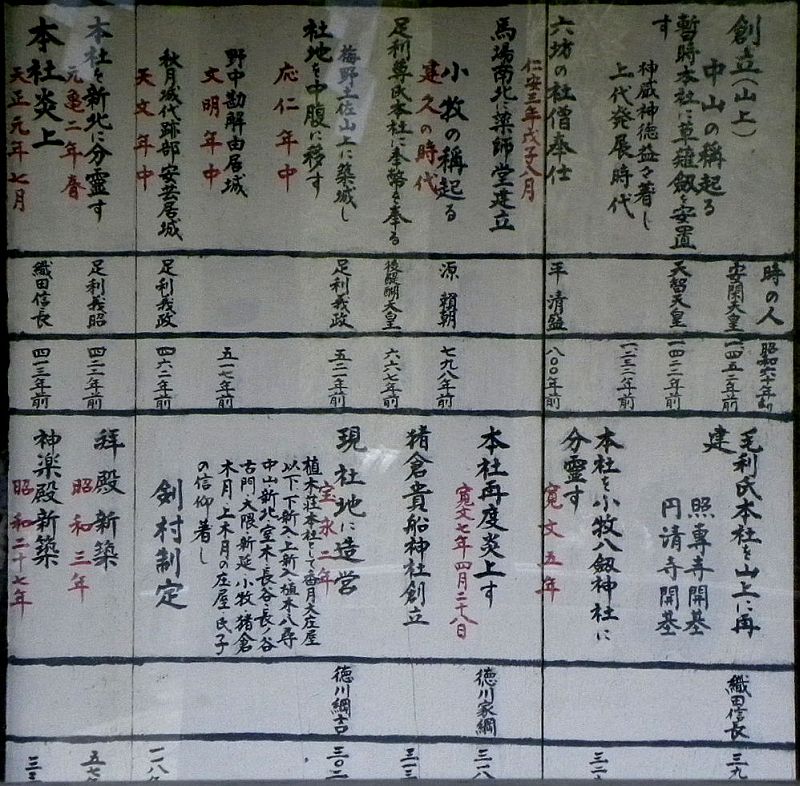 時の人
昭和六十年
創立(山上)
安閑天皇
一四五二年前
中山の稱起る
暫時本社に草薙劔を安置す
天智天皇
一三二二年前
神威神徳益々著し
上代発展時代
一二三二年前
六坊の社僧奉仕
平 清盛
八〇〇年前
仁安三年戊子八月
馬場南北に薬師堂建立
小牧の稱起る
建久の時代
源 頼朝
七九八年前
足利尊氏本社に奉幣を奉る
後醍醐天皇
六六七年前
梅野土佐山上に築城し
社地を中腹に移す
応仁年中
足利義政
五二一年前
野中勘解由居城
文明年中
五一七年前
秋月城代跡部安芸居城
天文年中
足利義政
四六二年前
本社を新北に分霊す
元亀二年春
足利義昭
四二二年前
本社炎上
天正元年七月
織田信長
四一三年前
毛利氏本社を山上に再建
織田信長
照專寺開基
円清寺開基
本社を小牧八劔神社に分霊す
寛文五年
本社再度炎上す
寛文七年四月二十八日
徳川家綱
三一八
猪倉貴船神社創立
三一三
現社地に造営
宝永二年
徳川綱吉
三〇二
植木荘本社として香月大庄屋
以下下新入上新入植木・八尋
中山・新北・室木・長谷・長ノ谷
古門・大隈・新延・小牧・猪倉
木月・上木月の庄屋氏子
の信仰著し
剣村制定
一八年
拝殿新築
昭和三年
五七年
神楽殿新築
昭和二十七年
三三